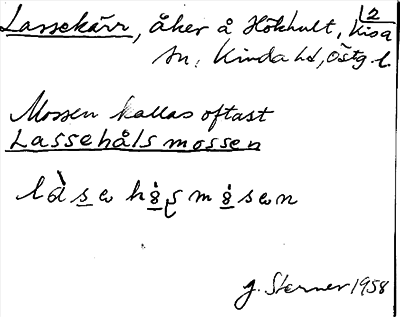 2
Lassekärr, åker å Hökhult, Kisa
sn, Kinda hd, Östg. l.
Mossen kallas oftast
Lassehålsmossen
J. Sterner 1958